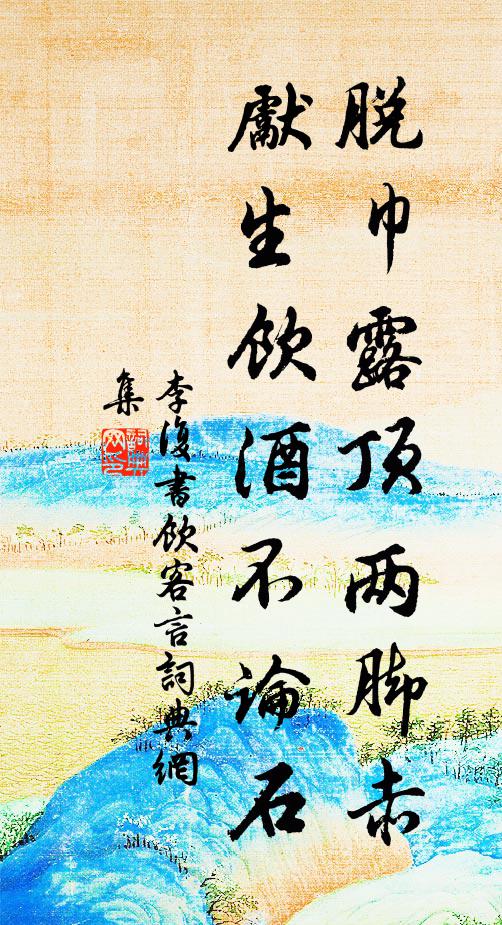 脱巾露顶两脚赤
獻生飲酒不論石
李復書飲客言詞典網
集